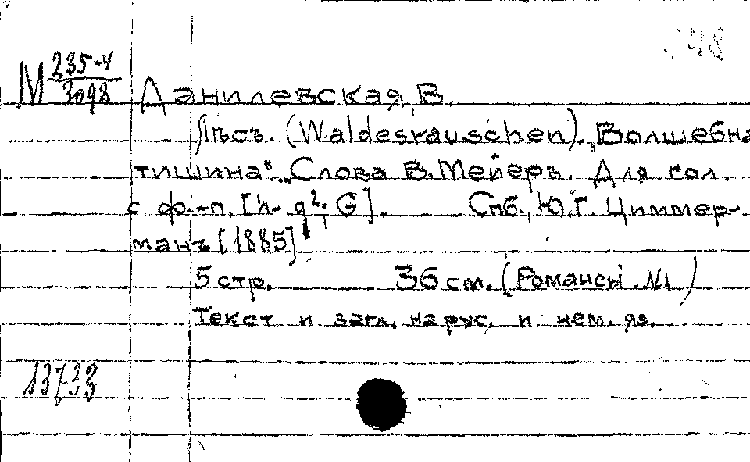 48
М 235-4
3098
Данилевская, В.
Лѣсъ. (Waldesrauschen). „Волшебна
тишина". Слова В. Мейеръ. Для гол.
с ф.-п. [h-g². G]. Спб., Ю.Г. Циммер-
манъ [1885]
5 стр. 36 см. (Романсы №1)
Текст и загл. на рус. и нем. яз.
13733